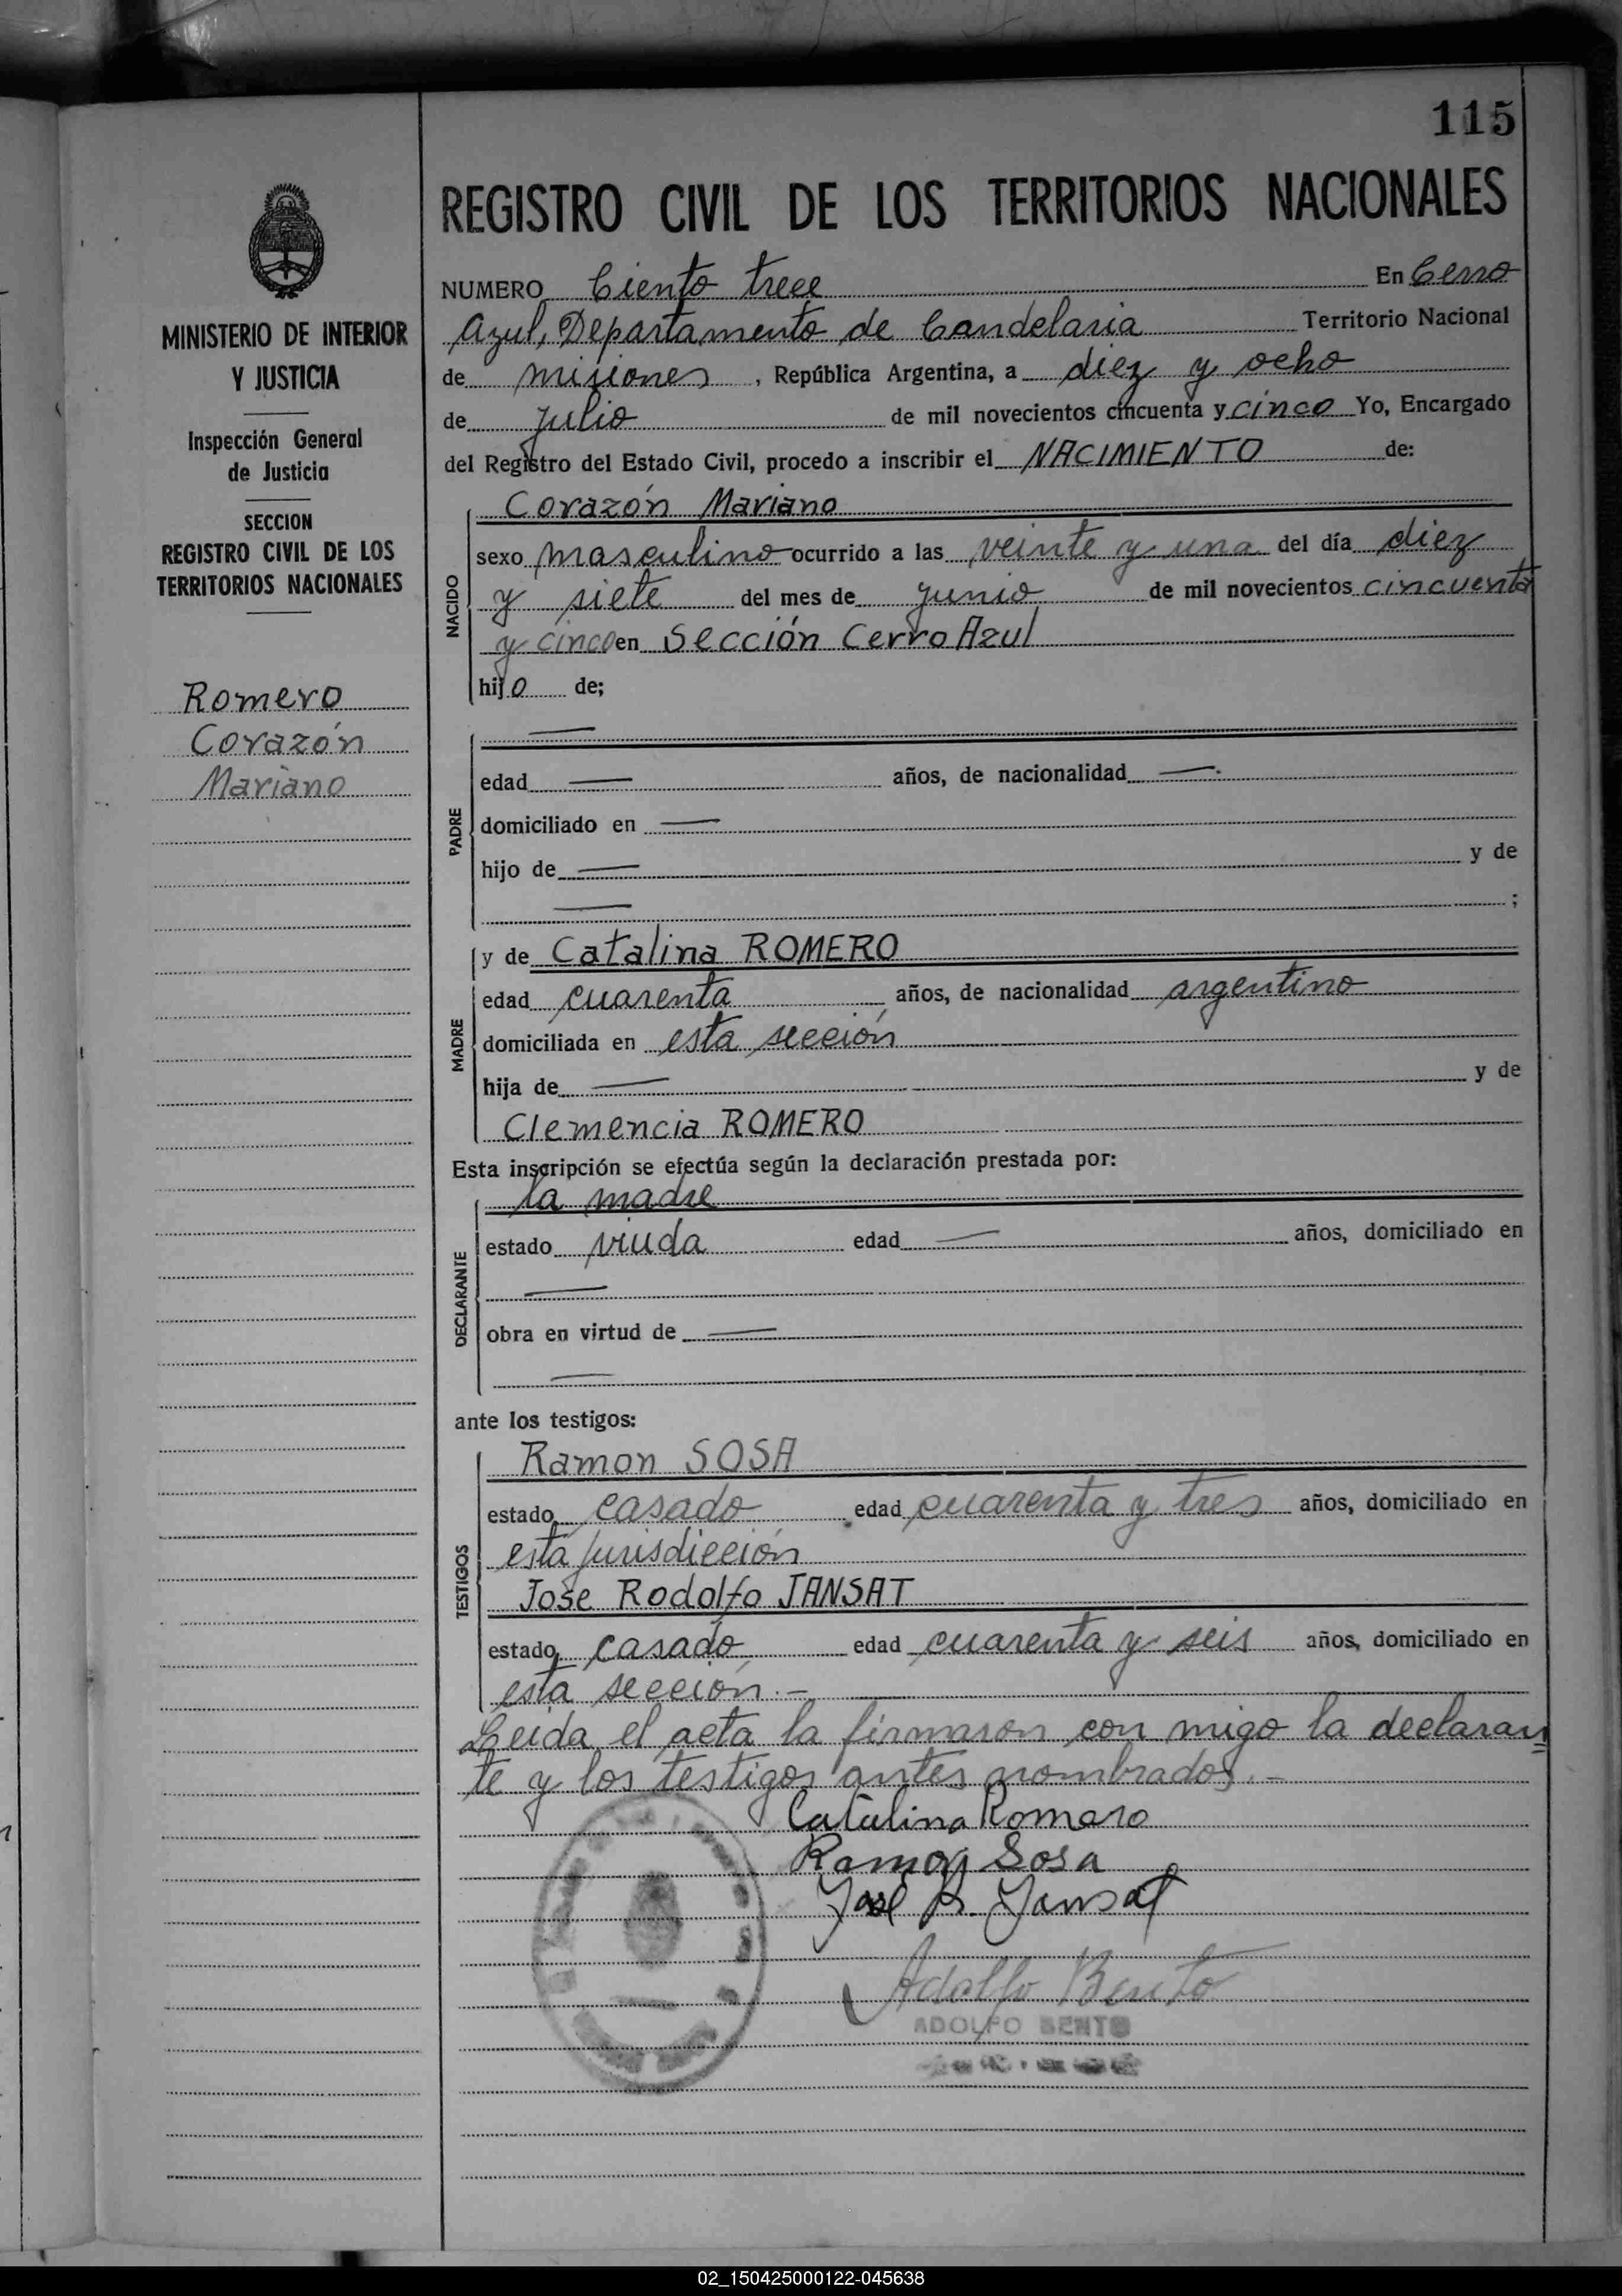 115
REGISTRO CIVIL DE LOS TERRITORIOS NACIONALES
MINISTERIO DE INTERIOR
Y JUSTICIA
Inspección General
de Justicia
SECCION
REGISTRO CIVIL DE LOS
TERRITORIOS NACIONALES
Romero
Corazón
Mariano
NUMERO Ciento trece En Cerro
Azul, Departamento de Candelaria Territorio Nacional
de misiones, República Argentina, a diez y ocho
de julio de mil novecientos cincuenta y cinco Yo, Encargado
del Registro del Estado Civil, procedo a inscribir el NACIMIENTO de:
NACIDO
Corazón Mariano
sexo masculino ocurrido a las veinte y una del día diez
y siete del mes de junio de mil novecientos cincuenta
y cinco en Sección Cerro Azul
hijo de;
PADRE
—
edad — años, de nacionalidad —.
domiciliado en —
hijo de — y de
— ;
MADRE
y de Catalina ROMERO
edad cuarenta años, de nacionalidad argentino
domiciliada en esta sección
hija de — y de
Clemencia ROMERO
Esta inscripción se efectúa según la declaración prestada por:
DECLARANTE
la madre
estado viuda edad — años, domiciliado en
—
obra en virtud de —
—
ante los testigos:
TESTIGOS
Ramon SOSA
estado casado edad cuarenta y tres años, domiciliado en
esta jurisdicción
Jose Rodolfo JANSAT
estado casado edad cuarenta y seis años, domiciliado en
esta sección.-
Leida el acta la firmaron con migo la declaran
te y los testigos antes nombrados.-
Catalina Romero
Ramón Sosa
José R. Jansat
Adolfo Bento
ADOLFO BENTO
02_150425000122-045638